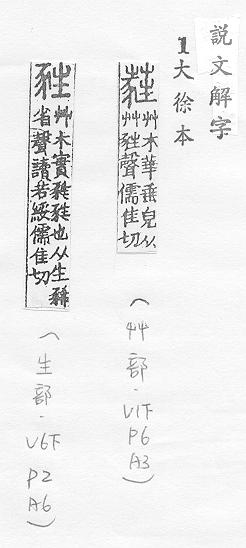 説文解字
1大徐本
蕤
艸木華垂皃从
艸甤聲儒佳切
(艸部.V1下 P6 A3)
甤
艸木實甤甤也从生豨
省聲讀若綏儒佳切
(生部.V6下 P2 A6)